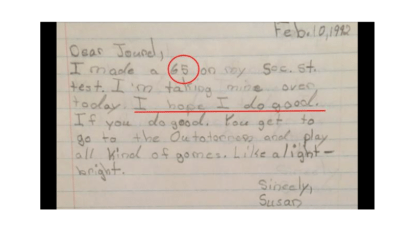 Feb. 10, 1992
Dear Jound,
I made a 65 on my Soc. St.
test. I'm taking mine over
today. I hope I do good.
If you do good. You get to
go to the Outatorness and play
all kind of games. Like a light-
bright.
Sincely,
Susan